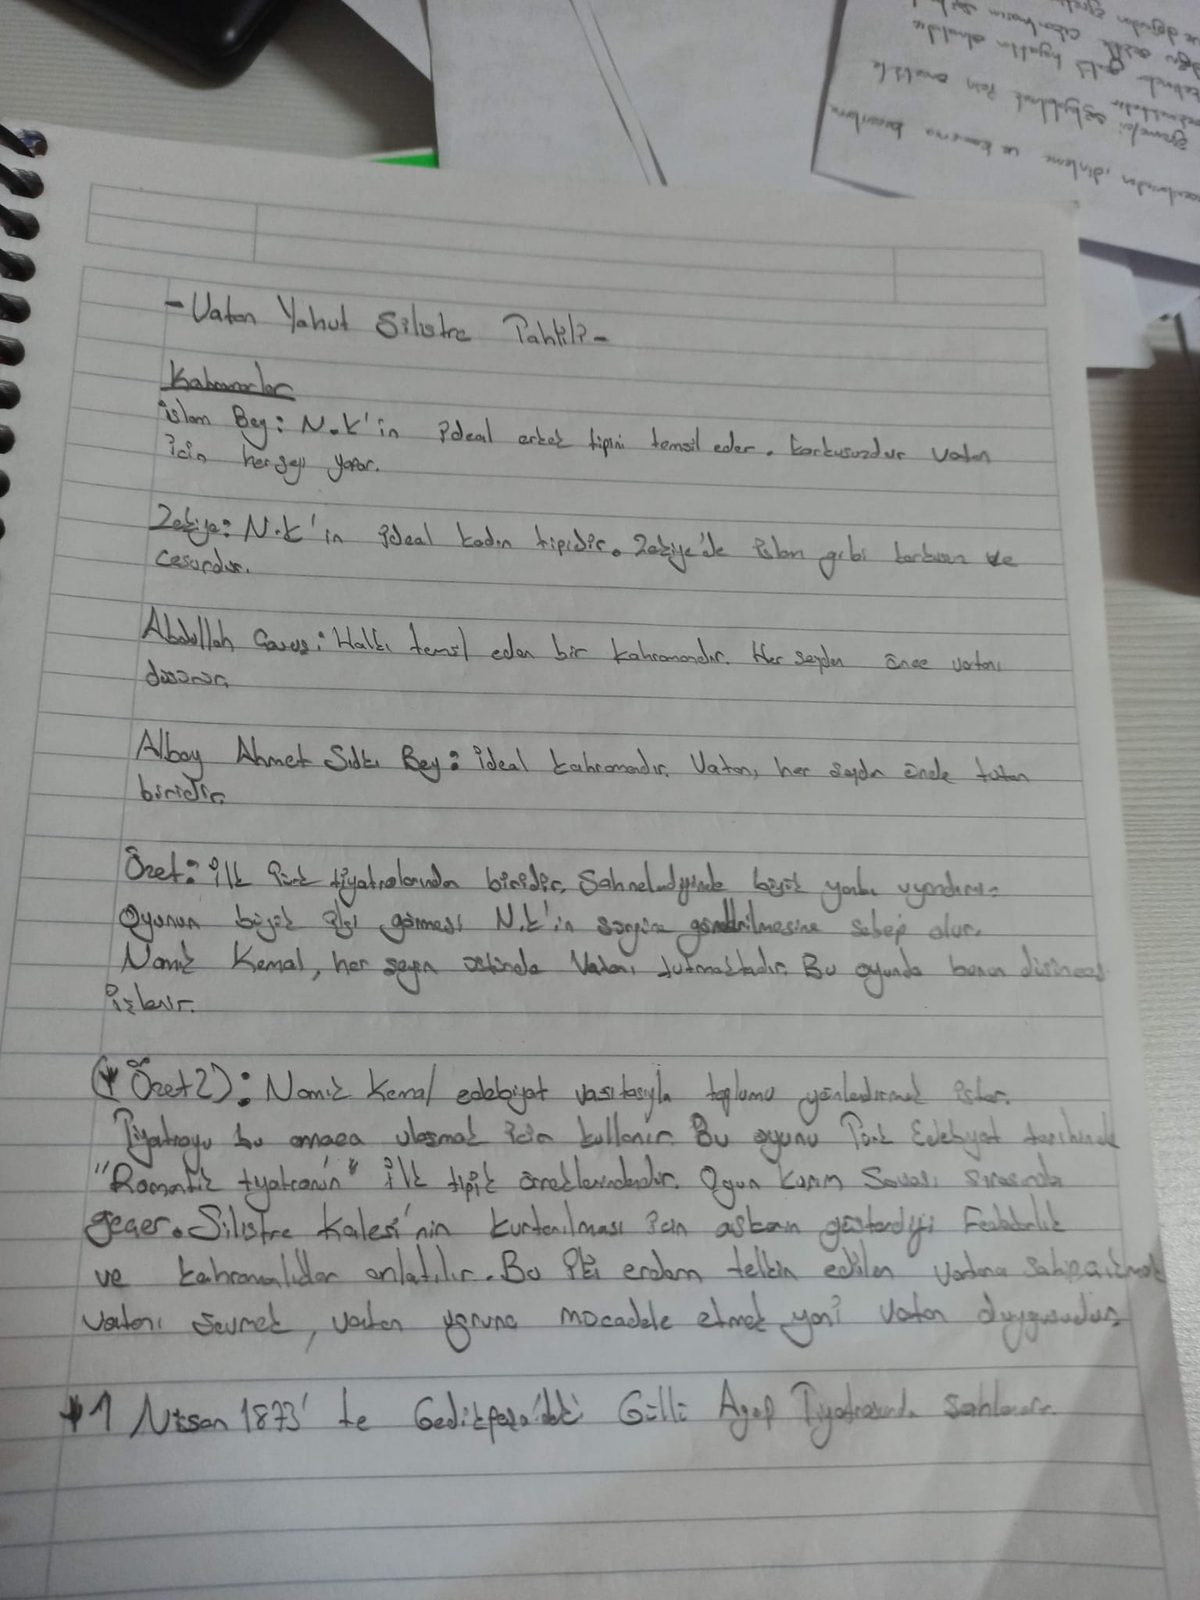 -Vatan Yahut Silistre Tahlili-
Kahramanlar
İslam Bey: N.K'in ideal erkek tipini temsil eder. Korkusuzdur vatan
için herşeyi yapar.
Zekiye: N.K'in ideal kadın tipidir. Zekiye'de islam gibi korkusuz ve
cesurdur.
Abdullah Çavuş: Halkı temsil eden bir kahramandır. Her şeyden önce vatanı
düşünür.
Albay Ahmet Sıdkı Bey: ideal kahramandır. Vatanı, her şeyden önde tutan
biridir.
Özet: ilk Türk tiyatrolarından biridir. Sahnelendiğinde büyük yankı uyandırır.
Oyunun büyük ilgi görmesi N.K'in sürgüne gönderilmesine sebep olur.
Namık Kemal, her şeyin üstünde Vatanı tutmaktadır. Bu oyunda bunun düşüncesi
işlenir.
(* Özet 2): Namık Kemal edebiyat vasıtasıyla toplumu yönlendirmek ister.
Tiyatroyu bu amaca ulaşmak için kullanır. Bu oyunu Türk Edebiyat tarihinde
"Romantik tiyatronun" ilk tipik örneklerindendir. Oyun Kırım Savaşı sırasında
geçer. Silistre Kalesi'nin kurtarılması için askerin gösterdiği Fedakarlık
ve kahramanlıklar anlatılır. Bu iki erdem telkin edilen vatana sahip çıkmak
vatanı sevmek, vatan uğruna mücadele etmek yani vatan duygusudur.
*1 Nisan 1873' te Gedikpaşa'daki Güllü Agop Tiyatrosunda sahlenir.